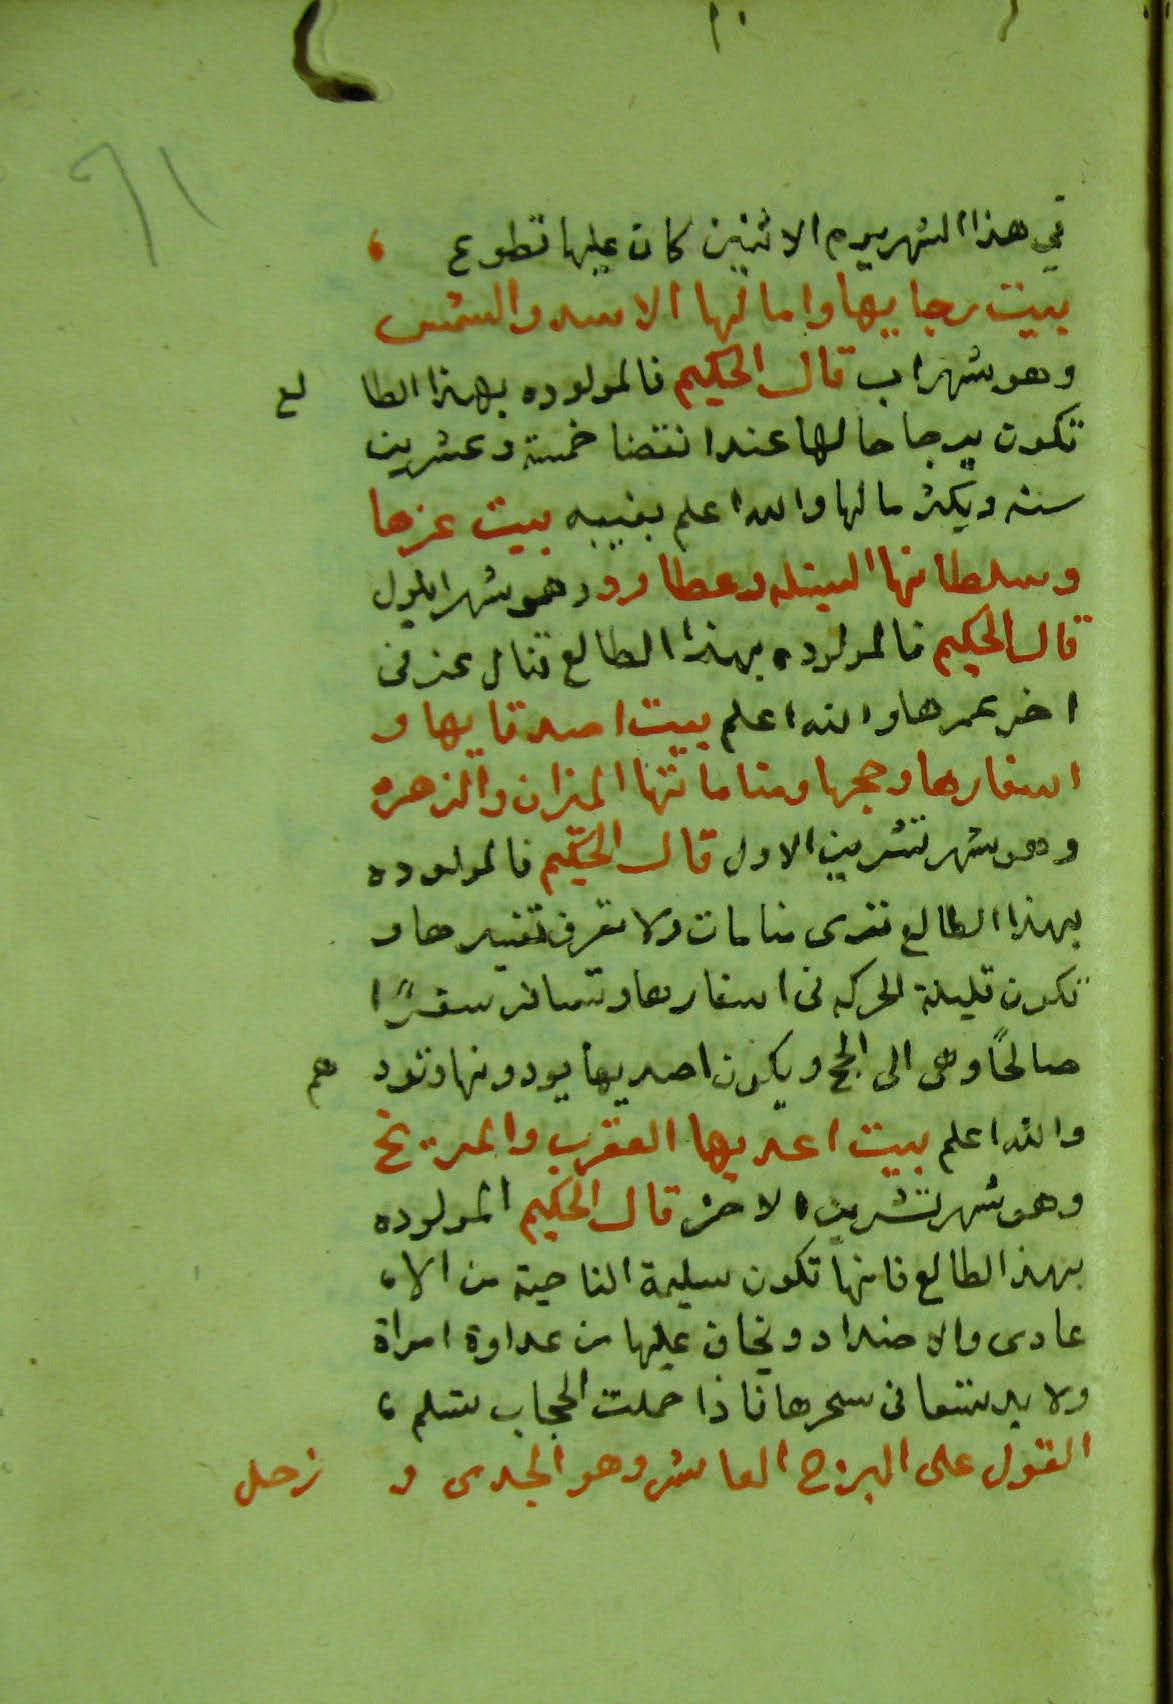 ٦١
في هذا الشهر يوم الاثنين كان عليها قطوع ،
بيت رجايها وامالها الاسد والشمس
وهو شهر اب قال الحكيم فالمولوده بهذا الطا لع
تكون يرجا حالها عند انقضا خمسة وعشرين
سنه ويكثر مالها والله اعلم بغيبه بيت عزها
وسلطانها السنبله وعطارد وهو شهر ايلول
قال الحكيم فالمولوده بهذا الطالع تنال عز في
اخر عمرها والله اعلم بيت اصدقايها و
اسفارها وحجها ومناماتها الميزان والزهره
وهو شهر تشرين الاول قال الحكيم فالمولوده
بهذا الطالع تري منامات ولا تعرف تفسيرها و
تكون قليلة الحركه في اسفارها وتسافر سفرًا
صالحًا وهي الى الحج ويكون اصديها يودونها وتود هم
والله اعلم بيت اعديها العقرب والمريخ
وهو شهر تشرين الاخر قال الحكيم المولوده
بهذا الطالع فانها تكون سليمة الناحية من الا،
عادى والاضداد ويخاف عليها من عداوة امراة
ولا بد تسعا في سحرها فاذا حملت الحجاب تسلم ،
القول على البرج العاشر وهو الجدى و زحل